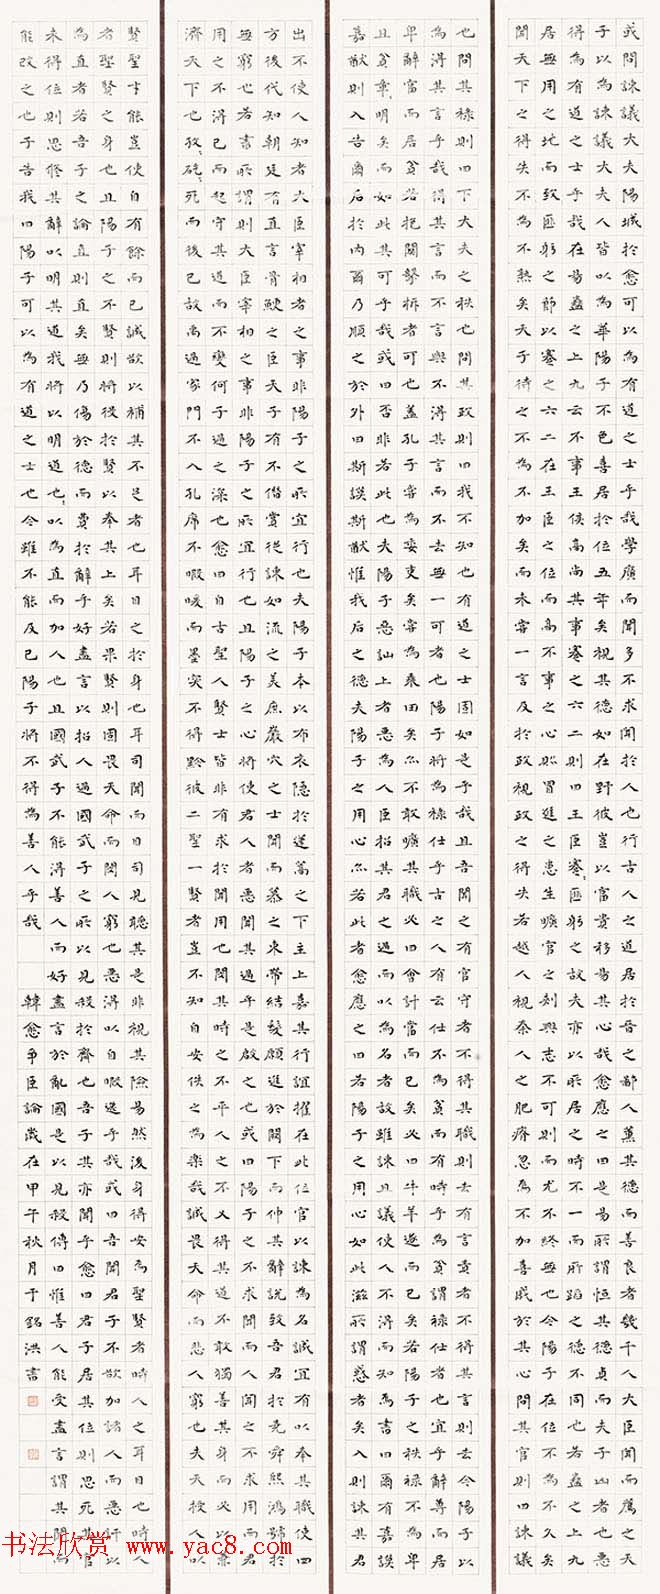 或問諫議大夫陽城於愈可以為有道之士乎哉學廣而聞多不求聞於人也行古人之道居於晉之鄙人薰其德而善良者幾千人大臣聞而薦之天
子以為諫議大夫人皆以為華陽子不色喜居於位五年矣視其德如在野彼豈以富貴移易其心哉愈應之曰是易所謂恒其德貞而夫子凶者也惡
得為有道之士乎哉在易蠱之上九云不事王侯高尚其事蹇之六二則曰王臣蹇蹇匪躬之故夫亦以所居之時不一而所蹈之德不同也若蠱之上九
居無用之地而致匪躬之節以蹇之六二在王臣之位而高不事之心則冒進之患生曠官之刺興志不可則而尤不終無也今陽子在位不為不久矣
聞天下之得失不為不熟矣天子待之不為不加矣而未嘗一言及於政視政之得失若越人視秦人之肥瘠忽焉不加喜戚於其心問其官則曰諫議
也問其祿則曰下大夫之秩也問其政則曰我不知也有道之士固如是乎哉且吾聞之有官守者不得其職則去有言責者不得其言則去今陽子以
為得其言乎哉得其言而不言與不得其言而不去無一可者也陽子將為祿仕乎古之人有云仕不為貧而有時乎為貧謂祿仕者也宜乎辭尊而居
卑辭富而居貧若抱關擊柝者可也蓋孔子嘗為委吏矣嘗為乘田矣亦不敢曠其職必曰會計當而已矣必曰牛羊遂而已矣若陽子之秩祿不為卑
且貧章明矣而如此其可乎哉或曰否非若此也夫陽子惡訕上者惡為人臣招其君之過而以為名者故雖諫且議使人不得而知焉書曰爾有嘉謨
嘉猷則入告爾后於內爾乃順之於外曰斯謨斯猷惟我后之德夫陽子之用心亦若此者愈應之曰若陽子之用心如此滋所謂惑者矣入則諫其君
出不使人知者大臣宰相者之事非陽子之所宜行也夫陽子本以布衣隱於蓬蒿之下主上嘉其行誼擢在此位官以諫為名誠宜有以奉其職使四
方後代知朝廷有直言骨鯁之臣天子有不僭賞從諫如流之美庶巖穴之士聞而慕之束帶結髮願進於闕下而伸其辭說致吾君於堯舜熙鴻號於
無窮也若書所謂則大臣宰相之事非陽子之所宜行也且陽子之心將使君人者惡聞其過乎是啟之也或曰陽子之不求聞而人聞之不求用而君
用之不得已而起守其道而不變何子過之深也愈曰自古聖人賢士皆非有求於聞用也閔其時之不平人之不乂得其道不敢獨善其身而必以兼
濟天下也孜孜矻矻死而後已故禹過家門不入孔席不暇暖而墨突不得黔彼二聖一賢者豈不知自安佚之為樂哉誠畏天命而悲人窮也夫天授人以
賢聖才能豈使自有餘而已誠欲以補其不足者也耳目之於身也耳司聞而目司見聽其是非視其險易然後身得安焉聖賢者時人之耳目也時人
者聖賢之身也且陽子之不賢則將役於賢以奉其上矣若果賢則固畏天命而閔人窮也惡得以自暇逸乎哉或曰吾聞君子不欲加諸人而惡訐以
為直者若吾子之論直則直矣無乃傷於德而費於辭乎好盡言以招人過國武子之所以見殺於齊也吾子其亦聞乎愈曰君子居其位則思死其官
未得位則思修其辭以明其道我將以明道也非以為直而加人也且國武子不能得善人而好盡言於亂國是以見殺傳曰惟善人能受盡言謂其聞而
能改之也子告我曰陽子可以為有道之士也今雖不能及已陽子將不得為善人乎哉
韓愈爭臣論歲在甲午秋月于銘洪書
书法欣赏 www.yac8.com